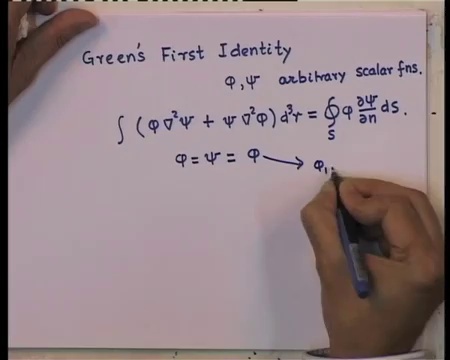 Green's First Identity
φ, ψ arbitrary scalar fns.
∫ (φ ∇²ψ + ψ ∇²φ) d³r = ∮_S φ ∂ψ/∂n dS.
φ = ψ = φ ⟶ φ₁